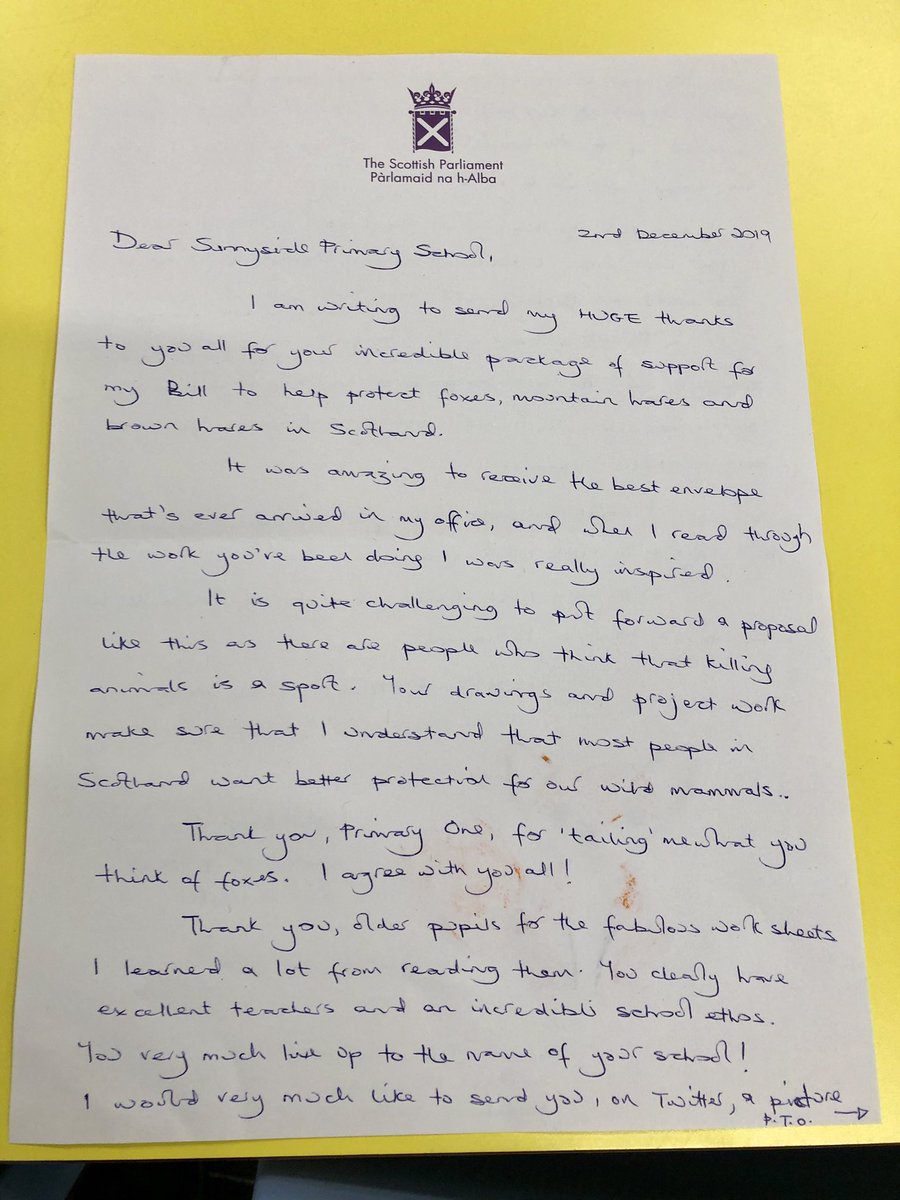 The Scottish Parliament
Pàrlamaid na h-Alba
2nd December 2019
Dear Sunnyside Primary School,
I am writing to send my HUGE thanks
to you all for your incredible package of support for
my Bill to help protect foxes, mountain hares and
brown hares in Scotland.
It was amazing to receive the best envelope
that's ever arrived in my office, and when I read through
the work you've been doing I was really inspired.
It is quite challenging to put forward a proposal
like this as there are people who think that killing
animals is a sport. Your drawings and project work
make sure that I understand that most people in
Scotland want better protection for our wild mammals..
Thank you, Primary One, for 'tailing' me what you
think of foxes. I agree with you all!
Thank you, older pupils for the fabulous work sheets
I learned a lot from reading them. You clearly have
excellent teachers and an incredible school ethos.
You very much live up to the name of your school!
I would very much like to send you, on Twitter, a picture
P.T.O.